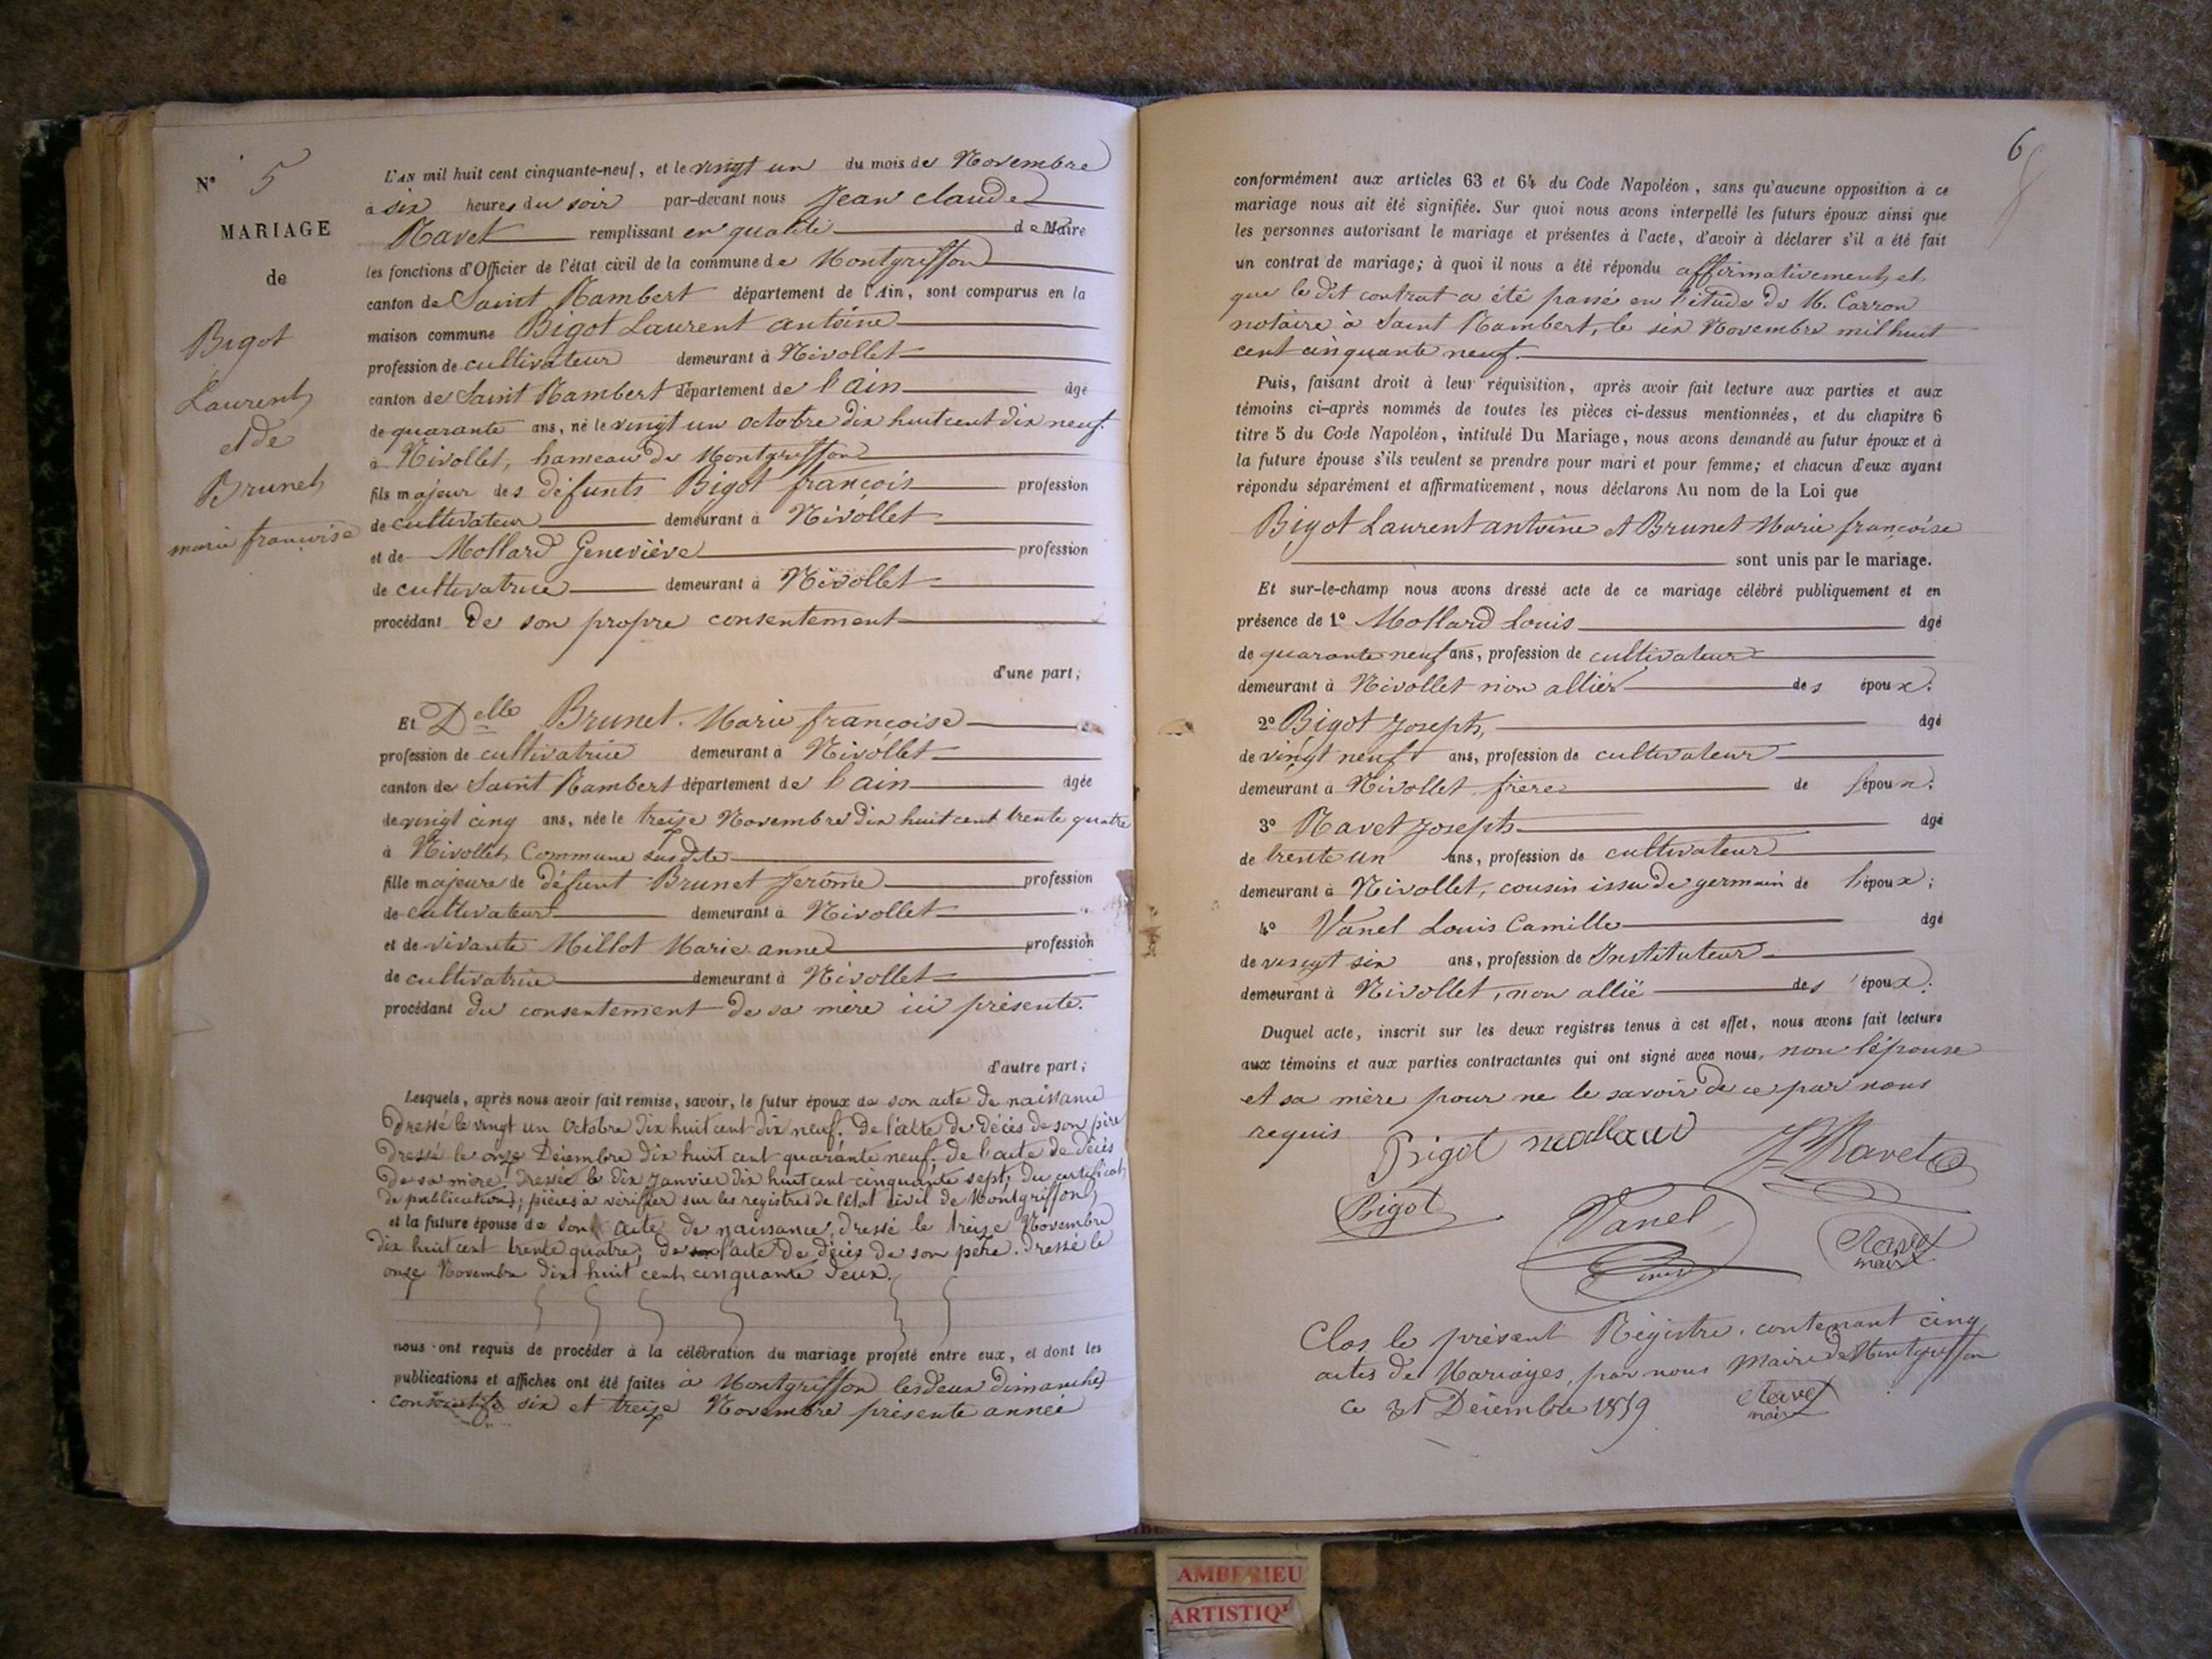 N° 5
MARIAGE
de
Bigot
Laurent
et de
Brunet
marie françoise
L'AN mil huit cent cinquante-neuf, et le vingt un du mois de Novembre
à six heures du soir par-devant nous Jean claude
Ravet remplissant en qualité de Maire
les fonctions d'Officier de l'état civil de la commune de Montgriffon
canton de Saint Rambert département de l'Ain, sont comparus en la
maison commune Bigot Laurent antoine
profession de cultivateur demeurant à Nivollet
canton de Saint Rambert département de l'ain âgé
de quarante ans, né le vingt un octobre dix huit cent dix neuf
à Nivollet, hameau de Montgriffon
fils majeur des défunts Bigot françois profession
de cultivateur demeurant à Nivollet
et de Mollard Geneviève profession
de cultivatrice demeurant à Nivollet
procédant de son propre consentement
d'une part;
Et Delle Brunet Marie françoise
profession de cultivatrice demeurant à Nivollet
canton de Saint Rambert département de l'ain âgée
de vingt cinq ans, née le treize Novembre dix huit cent trente quatre
à Nivollet Commune sus dite
fille majeure de défunt Brunet Jerôme profession
de cultivateur demeurant à Nivollet
et de vivante Millot Marie anne profession
de cultivatrice demeurant à Nivollet
procédant du consentement de sa mère ici présente.
d'autre part;
Lesquels, après nous avoir fait remise, savoir, le futur époux de son acte de naissance
dressé le vingt un Octobre dix huit cent dix neuf. De l'acte de décès de son père
dressé le onze Décembre dix huit cent quarante neuf; de l'acte de décès
de sa mère dressé le dix Janvier dix huit cent cinquante sept; du certificat
de publications; pièces à vérifier sur les registres de l'état civil de Montgriffon
et la future épouse de son acte de naissance, dressé le treize Novembre
dix huit cent trente quatre; de l'acte de décès de son père. dressé le
onze Novembre dix huit cent cinquante deux.
nous ont requis de procéder à la célébration du mariage projeté entre eux, et dont les
publications et affiches ont été faites à Montgriffon les deux dimanches
consécutifs six et treize Novembre présente année
6
conformément aux articles 63 et 64 du Code Napoléon, sans qu'aucune opposition à ce
mariage nous ait été signifiée. Sur quoi nous avons interpellé les futurs époux ainsi que
les personnes autorisant le mariage et présentes à l'acte, d'avoir à déclarer s'il a été fait
un contrat de mariage; à quoi il nous a été répondu affirmativement et
que le dit contrat a été passé en l'étude de M. Carron
notaire à Saint Rambert, le six Novembre mil huit
cent cinquante neuf.
Puis, faisant droit à leur réquisition, après avoir fait lecture aux parties et aux
témoins ci-après nommés de toutes les pièces ci-dessus mentionnées, et du chapitre 6
titre 5 du Code Napoléon, intitulé Du Mariage, nous avons demandé au futur époux et à
la future épouse s'ils veulent se prendre pour mari et pour femme; et chacun d'eux ayant
répondu séparément et affirmativement, nous déclarons Au nom de la Loi que
Bigot Laurent antoine et Brunet Marie françoise
sont unis par le mariage.
Et sur-le-champ nous avons dressé acte de ce mariage célébré publiquement et en
présence de 1° Mollard Louis âgé
de quarante neuf ans, profession de cultivateur
demeurant à Nivollet non allié des époux.
2° Bigot Joseph, âgé
de vingt neuf ans, profession de cultivateur
demeurant à Nivollet frère de l'époux.
3° Ravet Joseph âgé
de trente un ans, profession de cultivateur
demeurant à Nivollet, cousin issu de germain de l'époux;
4° Vanel Louis Camille âgé
de vingt six ans, profession de Instituteur
demeurant à Nivollet, non allié des époux.
Duquel acte, inscrit sur les deux registres tenus à cet effet, nous avons fait lecture
aux témoins et aux parties contractantes qui ont signé avec nous, non l'épouse
et sa mère pour ne le savoir de ce par nous
requis
Bigot mollard J Ravet
Bigot Vanel Ravet
maire
Clos le présent Régistre, contenant cinq
actes de Mariages, par nous Maire de Montgriffon
ce 31 Décembre 1859 Ravet
maire
AMBERIEU
ARTISTIQ